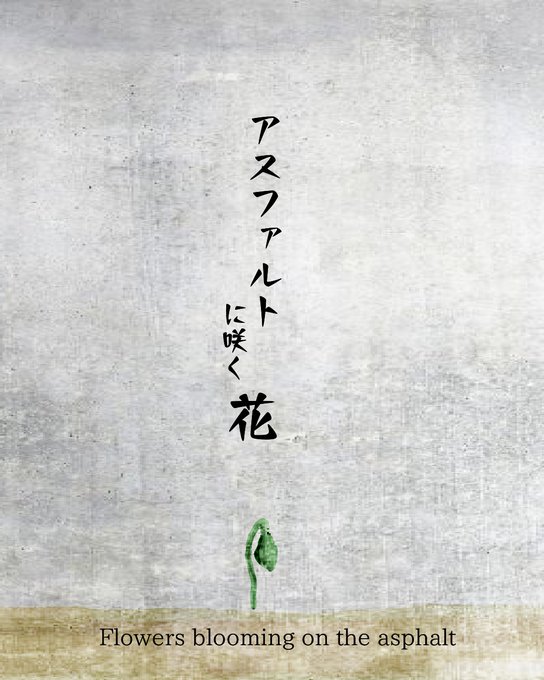 アスファルト
に咲く
花
Flowers blooming on the asphalt